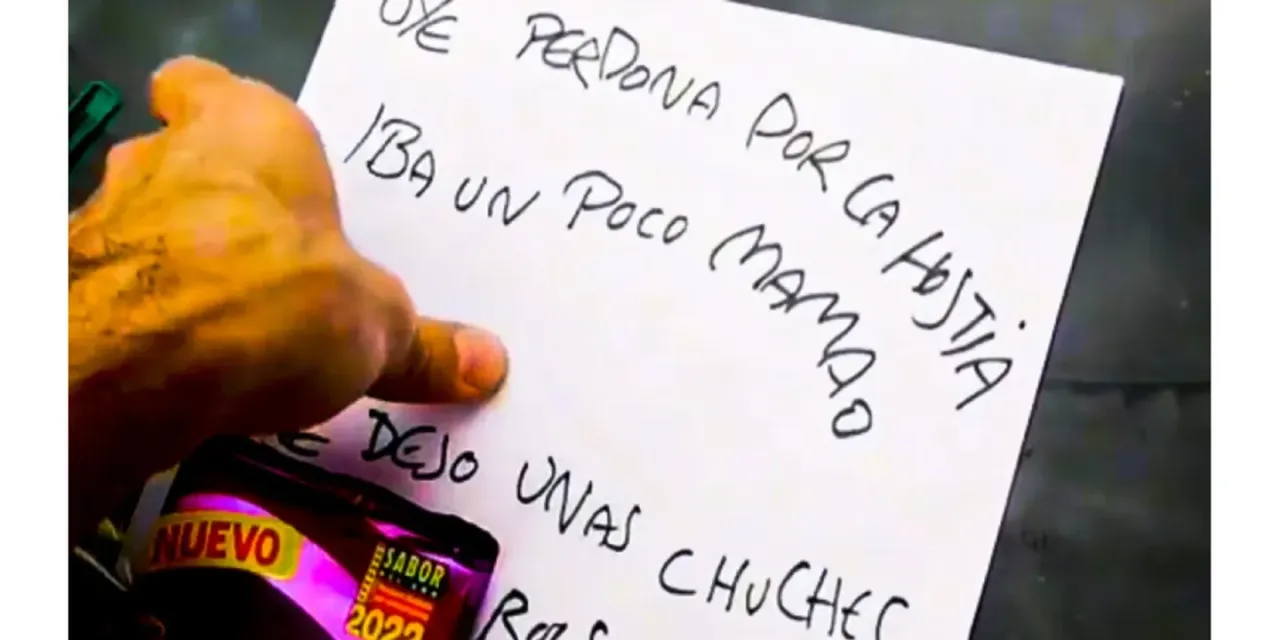 OYE PERDONA POR LA HOSTIA
IBA UN POCO MAMAO
TE DEJO UNAS CHUCHES
NUEVO
SABOR
DEL AÑO
2022